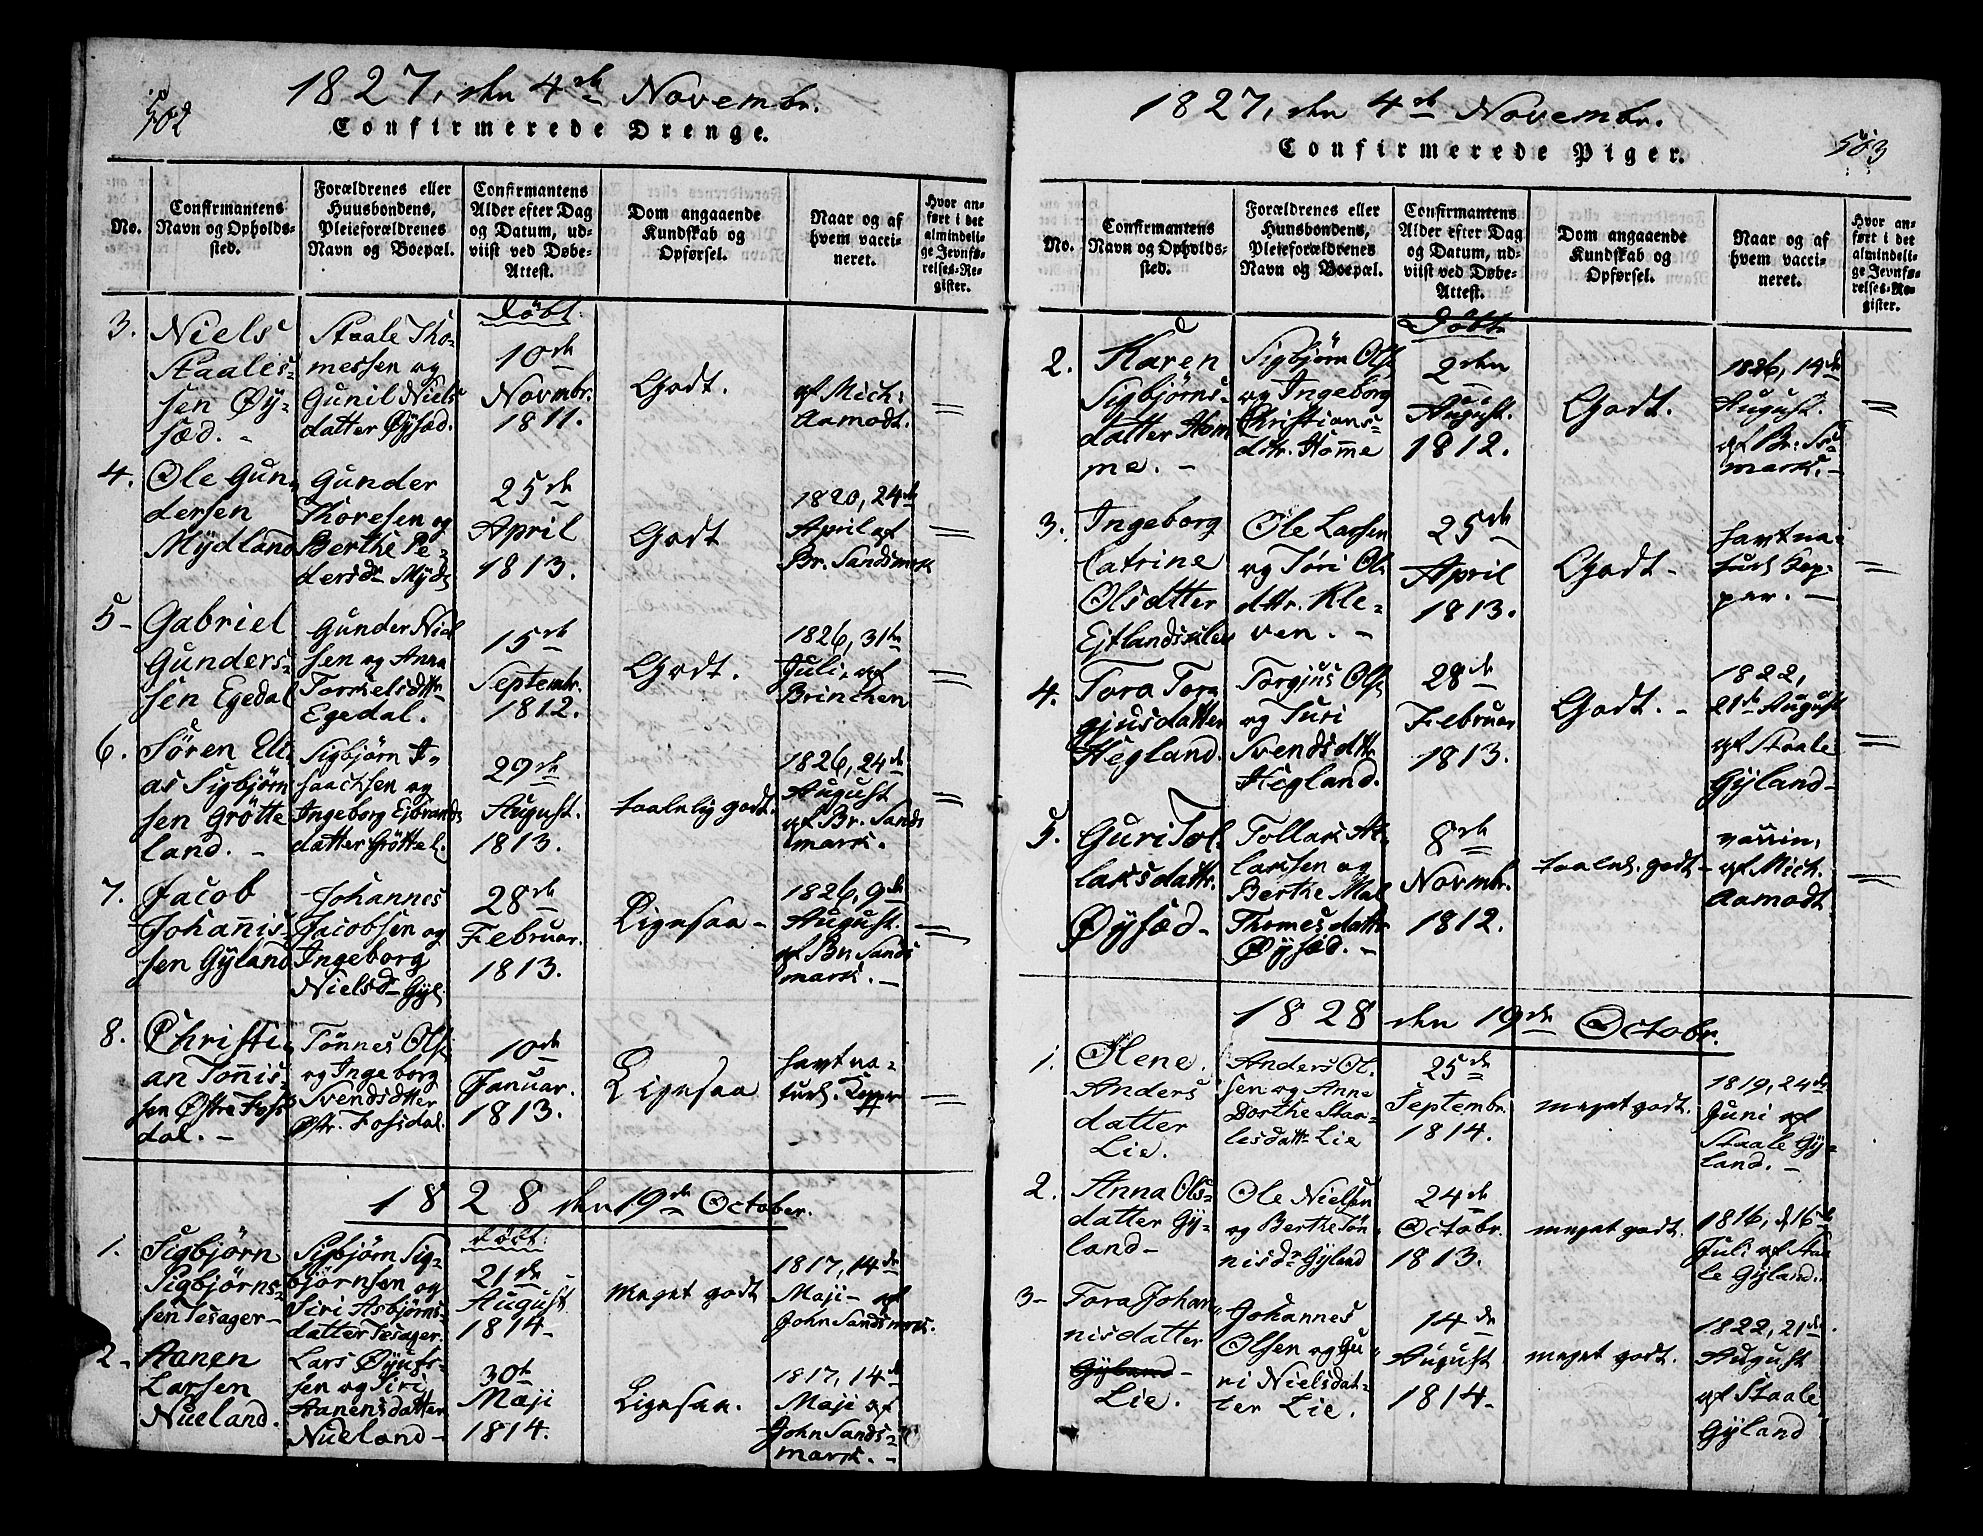 502
1827, den 4de Novembr.
Confirmerede Drenge.
No.
Confirmantens
Navn og Opholds-
sted.
Forældrenes eller
Huusbondens,
Pleieforældrenes
Navn og Boepæl.
Confirmantens
Alder efter Dag
og Datum, ud-
viist ved Døbe-
Attest.
Dom angaaende
Kundskab og
Opførsel.
Naar og af
hvem vacci-
neret.
Hvor an-
ført i det
almindeli-
ge Jevnfø-
relses-Re-
gister.
3.
Niels
Staales-
sen Øy-
sæd. -
Staale Tho-
messen og
Gunil Niels
datter Øysæd.
Døbt.
10de
Novmbr.
1811.
Godt.
af Mich:
Aamodt.
=
4.
Ole Gun-
dersen
Mydland
Gunder
Thoresen og
Berthe Pe-
dersdr Myd:
25de
April
1813.
Godt
1820, 24de
April af
Br. Sandsmark
=
5-
Gabriel
Gunders-
sen Egedal
Gunder Niel
sen og Anna
Tormelsdttr
Egedal.
15de
Septembr.
1812.
Godt.
1826, 31te
Juli, af
Brinchen
=
6.
Søren Eli-
as Sigbjørn
sen Grøtte
land. -
Sigbjørn I-
saachsen og
Ingeborg Ejbrands
datter Grøttel.
29de
August.
1813.
taalelig godt.
1826, 24de
August
af Br. Sands
mark.
=
7.
Jacob
Johannis-
sen Gyland
Johannes
Jacobsen og
Ingeborg
Nielsd- Gyl:
28de
Februar.
1813.
Ligesaa -
1826, 9de
August.
af Br. Sands
mark. -
=
8.
Christi-
an Tønnis-
sen Østre Fos
dal. -
Tønnes Ols:
og Ingeborg
Svendsdtter
Østr. Fosdal.
10de
Januar.
1813.
Ligesaa
havt na-
turl. Kopper
=
1828 den 19de October.
1.
Sigbjørn
Sigbjørns-
sen Tesager-
Sigbjørn Sig-
bjørnsen og
Siri Asbjørns
datter Tesager.
Døbt.
21de
August
1814-
meget godt
1817, 14de
Maji- af
John Sandsmark.
2-
Aanen
Larsen
Nueland.
Lars Øyufs-
sen og Siri
Aanensdatter
Nueland-
30te
Maji
1814.
Ligesaa.
1817, 14de
Maji af
John Sands-
mark. -
1827, den 4de Novembr.
Confirmerede Piger.
503
No.
Confirmantens
Navn og Opholds-
sted.
Forældrenes eller
Huusbondens,
Pleieforældrenes
Navn og Boepæl.
Confirmantens
Alder efter Dag
og Datum, ud-
viist ved Døbe-
Attest.
Dom angaaende
Kundskab og
Opførsel.
Naar og af
hvem vacci-
neret.
Hvor an-
ført i det
almindeli-
ge Jevnfø-
relses-Re-
gister.
2.
Karen
Sigbjørns-
datter Hom
me. -
Sigbjørn Ols:
og Ingeborg
Christians-
dtr. Homme
Døbt
2den
August.
1812.
Godt.
1826, 14de
August.
af Br: San
mark. -
=
3.
Ingeborg
Catrine
Olsdtter
Ole Larsen
og Tøri Ol-
dttr. Kle-
ven. -
25de
April
1813.
Godt -
havt na-
turl. Kop-
per. -
=
4.
Tora Tor
gjusdatter
Hegland.
Torgjus Ols:
og Turi
Svendsdttr
Hegland.
28de
Februar
1813.
Godt. -
1822,
21de August
af Staale
Gyland-
=
5.
Guri Tol-
laksdattr.
Øysæd -
Tollak As-
laksen og
Berthe Mal
Thomesdattr
Øysæd. -
8de
Novmbr.
1812.
taalel. godt -
vaccin,
af Mich.
Aamodt
=
1828 den 19de Octobr.
1.
Elene
Anders
datter
Lie.
Anders Ol-
sen og Anne
Dorthe Staa-
lesdattr Lie
25de
Septembr.
1814.
meget godt.
1819, 24de
Juni af
Staale Gy-
land. -
2.
Anna Ols-
datter Gy-
land-
Ole Nielsen
og Berthe Tøn-
nisdr Gyland
24de
Octobr.
1813.
meget godt.
1816, d 16de
Juli af Staa
le Gyland.
3-
Tora Johan-
nisdatter
Gyland -
Lie.
Johannes
Olsen og Gu-
ri Nielsdat-
ter Lie.
14de
August
1814-
meget godt.
1822, 21de.
August
af Staale
Gyland